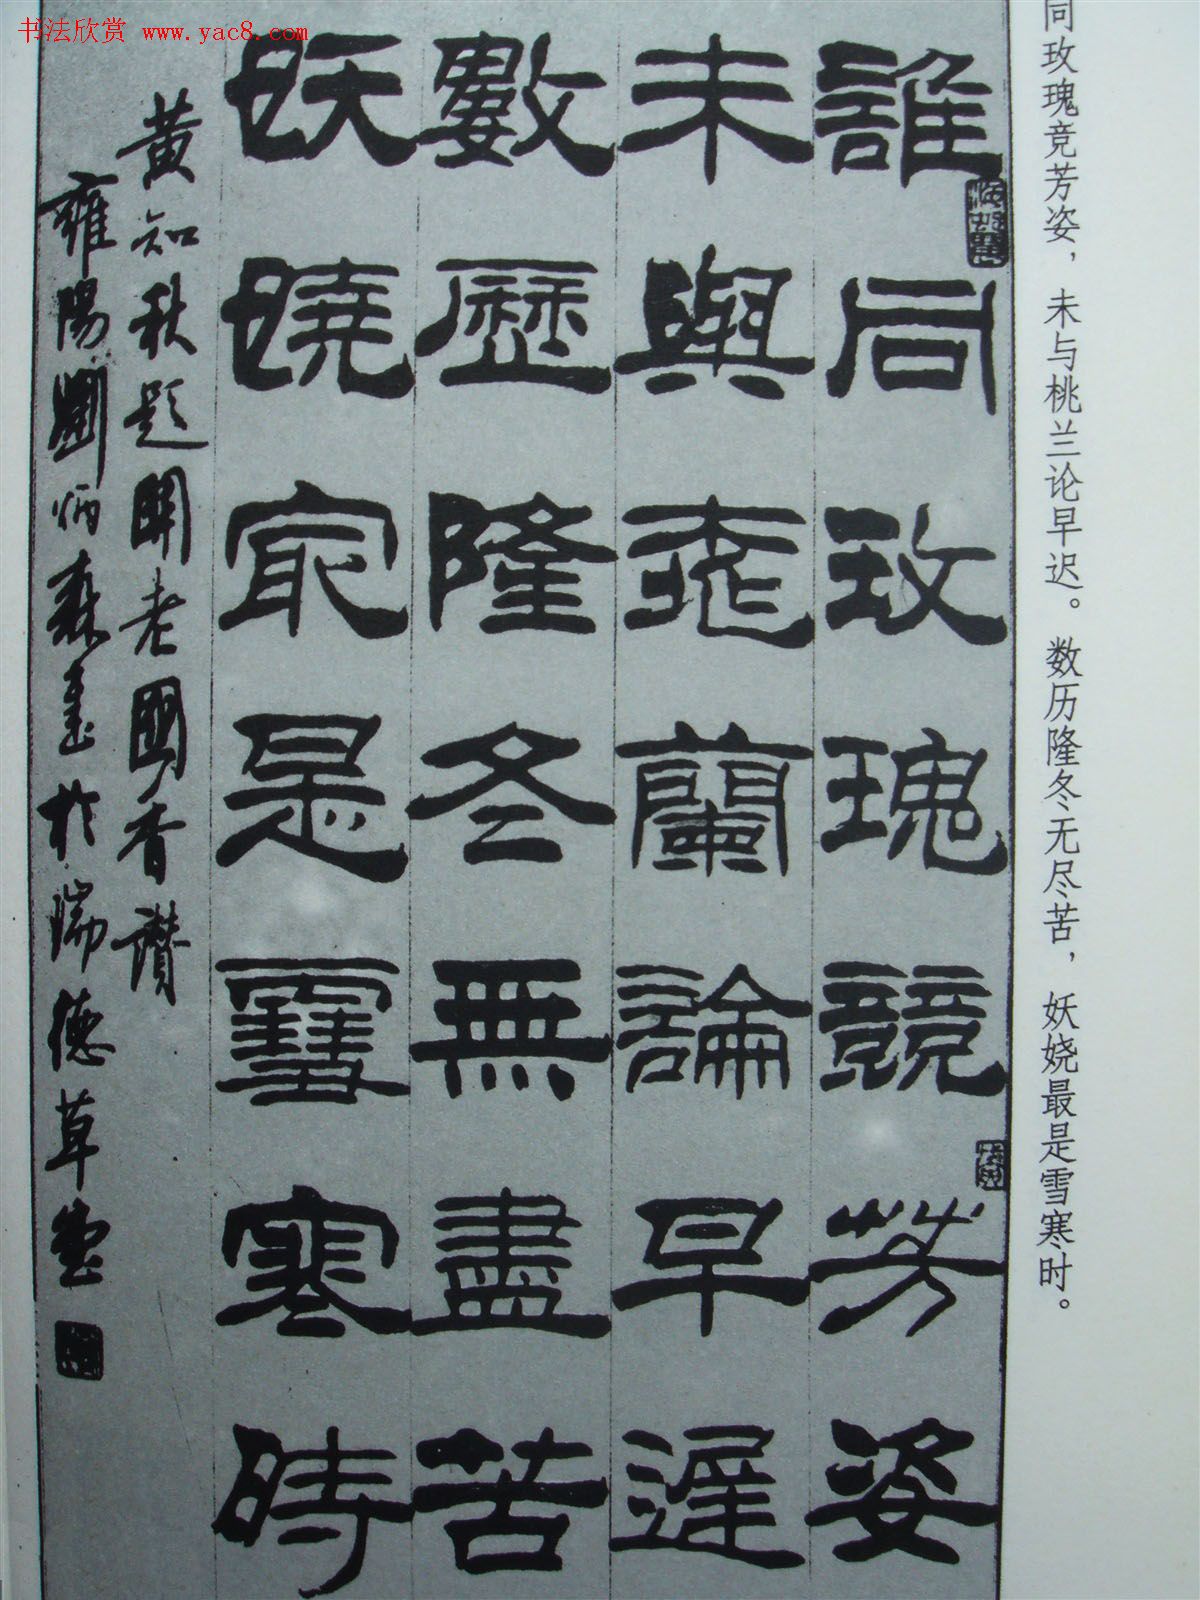 书法欣赏 www.yac8.com
同玫瑰竞芳姿，未与桃兰论早迟。数历隆冬无尽苦，妖娆最是雪寒时。
誰同玫瑰競芳姿
未與桃蘭論早遲
數歷隆冬無盡苦
妖嬈最是雪寒時
黄知秋題開老國香讃
雍陽劉炳森書於瑞德草堂